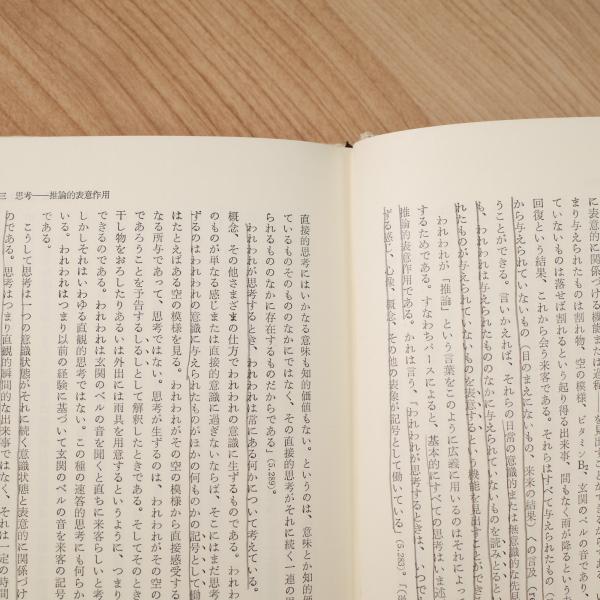 に表意的に関係づける機能または過程
を見出すことができるからである
まり与えられたものは割れ物、空の模様、ビタミンB₂、玄関のベルの音であり、
ていないものは落せば割れるという起り得る出来事、間もなく雨が降るという
回復という結果、これから会う来客である。それらはすべて与えられたもの（
から与えられていないもの（目のまえにないもの、未来の結果）への言及（
うことができる。言いかえれば、それらの日常の意識的または無意識的な先見
も、われわれは与えられたもののなかに与えられていないものを読みとると
れたものが与えられていないものを表意する、という機能を見出すことができ
われわれが「推論」という言葉をこのように広義に用いるのはそれによっ
するためである。すなわちパースによると、基本的にすべての思考はいま述
推論的表意作用である。かれは言う、「われわれが思考するときは、いつで
する感じ、心像、概念、その他の表象が記号として働いている」（5.283）。
三　思考——推論的表意作用
直接的思考にはいかなる意味も知的価値もない。というのは、意味とか知的価
ているものそのもののなかにではなく、その直接的思考がそれに続く一連の思
られるもののなかに存在するものだからである」（5.289）。
われわれが思考するとき、われわれは常にある何かについて考えている。
概念、その他さまざまの仕方でわれわれの意識に生ずるものである。われわ
のものが単なる感じまたは直接的意識に過ぎないならば、そこにはまだ思考
ずるのはわれわれの意識に与えられたものがほかの何ものかの記号として働
はたとえばある空の模様を見る。われわれがその空の模様から直接感受する
なる所与であって、思考ではない。思考が生ずるのは、われわれがその空の
であろうことを予告するしるしとして解釈したときである。そしてそのとき
干し物をおろしたりあるいは外出には雨具を用意するというように、つまり
できるのである。われわれは玄関のベルの音を聞くと直ちに来客らしいと考
しかしそれはいわゆる直観的思考ではない。この種の速答的思考にも何らか
いる。われわれはつまり以前の経験に基づいて玄関のベルの音を来客の記号
である。
こうして思考は一つの意識状態がそれに続く意識状態と表意的に関係づけ
のである。思考はつまり直観的瞬間的な出来事ではなく、それは一定の時間